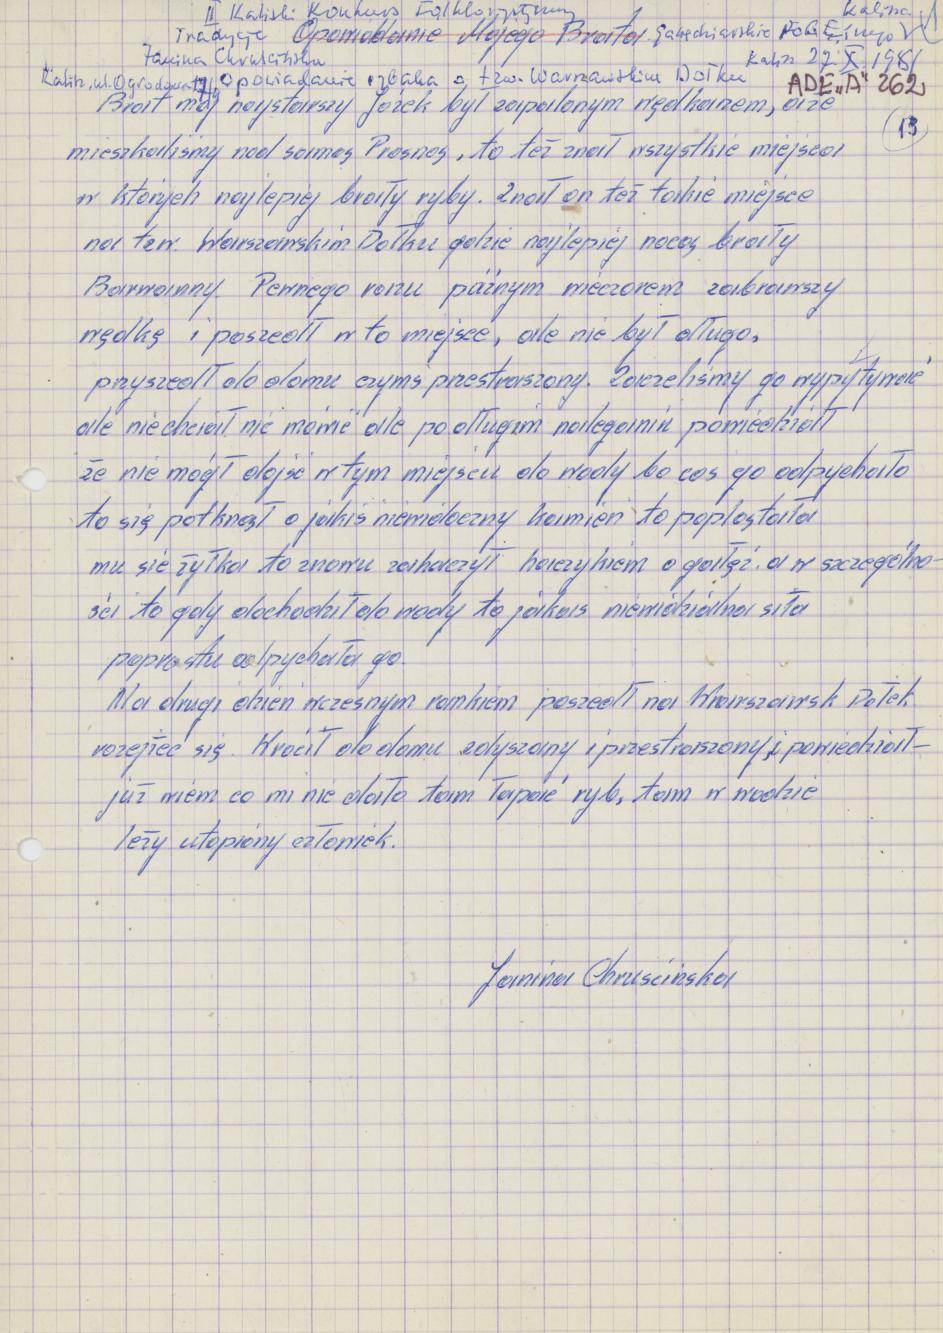 II Kaliski Konkurs Folklorystyczny Kalina
Tradycje Opowiadanie Mojego Brata Gawędziarskie
Janina Chruścińska Kalisz 27 X 1981
Kalisz, ul. Ogrodowa Opowiadanie rybaka o tzw. Warszawskim Dołku ADE "A" 262
13
Brat mój najstarszy Józek był zapalonym wędkarzem, a że
mieszkaliśmy nad samą Prosną, to też znał wszystkie miejsca
w których najlepiej brały ryby. Znał on też takie miejsce
na tzw. Warszawskim Dołku gdzie najlepiej nocą brały
Barwanny. Pewnego razu późnym wieczorem zabrawszy
wędkę i poszedł w to miejsce, ale nie był długo,
przyszedł do domu czymś przestraszony. Zaczeliśmy go wypytywać
ale niechciał nic mówić ale po długim naleganiu powiedział
że nie mógł dojść w tym miejscu do wody bo coś go odpychało
to się potknął o jakiś niewidoczny kamień to poplątała
mu sie żyłka to znowu zahaczył haczykiem o gałęź. a w szczególno-
ści to gdy dochodził do wody to jakaś niewidzialna siła
poprostu odpychała go.
Na drugi dzień wczesnym rankiem poszedł na Warszawsk Dołek
rozejżeć się. Wrócił do domu zdyszany i przestraszony, i powiedział-
już wiem co mi nie dało tam łapać ryb, tam w wodzie
leży utopiony człowiek.
Janina Chruścińska